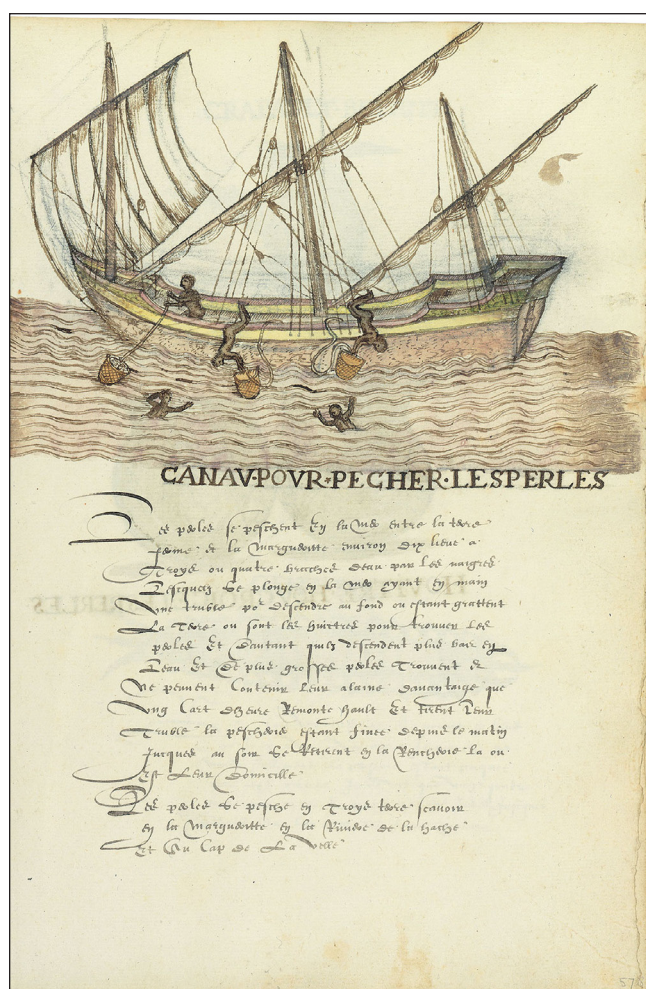 CANAV·POVR·PECHER·LES PERLES
Les perles se peschent En la Mer entre la terre
ferme & la margueritte environ dix lieue a
Troys ou quatre brasses deau par Les naigres
Lesquelz Se plonge en la mer ayant en main
Une truble por descendre au fond ou estant grattent
La Terre ou sont les huistres pour trouver Les
perles Et dautant quilz descendent plus bas en
Leau Et De plus grosses perles Trouvent &
Ne peuvent Contenir Leur alaine davantaige que
Ung Cart dheure Remonte hault Et tirent Leur
Truble la pescherie estant finee depuis le matin
Jucques au soir Se Retirent en la Rencherie La ou
Est Leur Domicille
Les perles Se pesche en Troys terre scavoir
en la margueritte en la Riviere de la hache
Et Au Cap de La velle
57